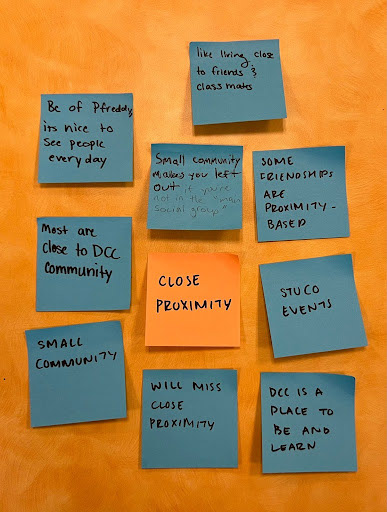 like living close
to friends &
class mates
Be of Pfreddy,
its nice to
see people
every day
Small community
makes you left
out if you're
not in the "main
social group"
SOME
FRIENDSHIPS
ARE
PROXIMITY-
BASED
Most are
close to DCC
Community
CLOSE
PROXIMITY
STUCO
EVENTS
SMALL
COMMUNITY
WILL MISS
CLOSE
PROXIMITY
DCC IS A
PLACE TO
BE AND
LEARN